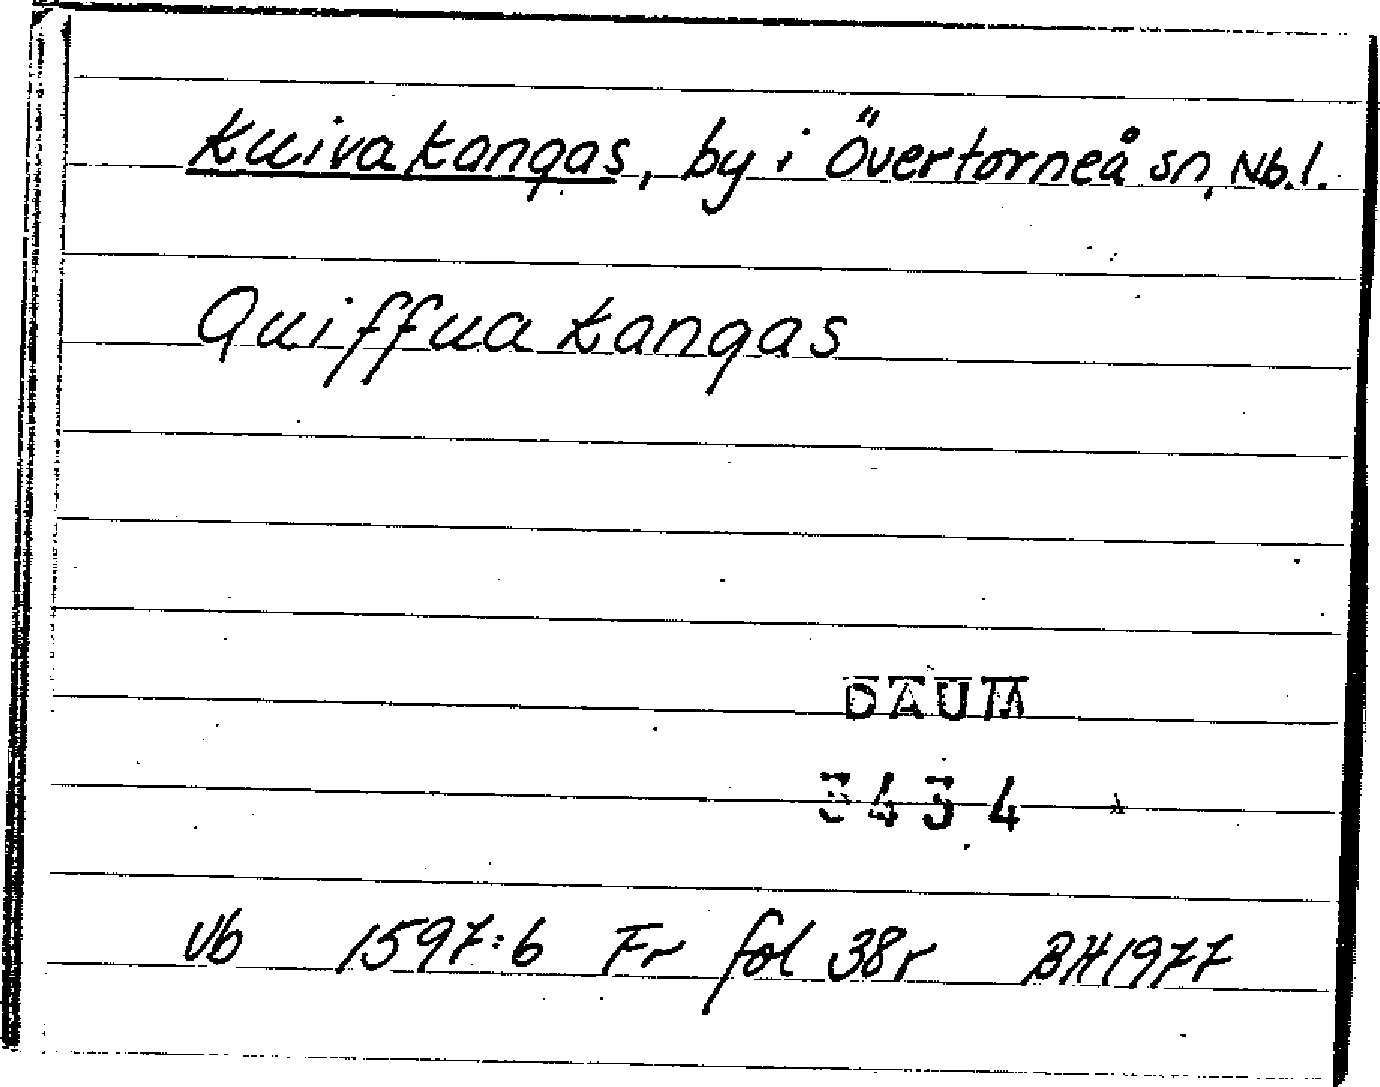 Kuivakangas, by i Övertorneå sn, Nb.l.
Quiffua kangas
DAUM
3434
Vb 1597:6 Fr fol 38r BH1977